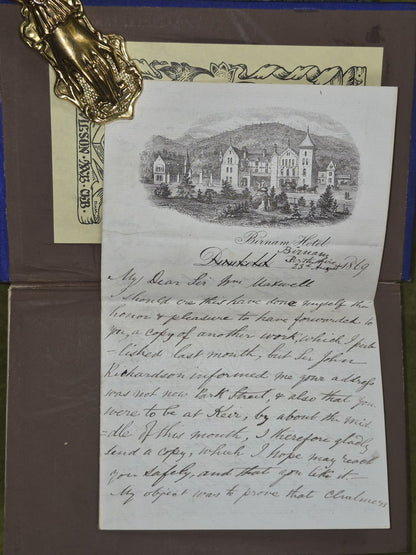 Birnam Hotel
Dunkeld, Birnam
Perthshire
23d August 1869
My Dear Sir Wm Maxwell
I should ere this have done myself the
honor & pleasure to have forwarded to
you, a copy of another work, which I pub
=lished last month, but Sir John
Richardson informed me your address
was not now Park Street, & also that you
were to be at Keir, by about the mid
=dle of this month, I therefore gladly
send a copy, which I hope may reach
you safely, and that you like it—
My object was to prove that Chalmers